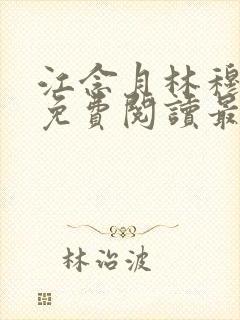 江念月林穆
免費閱讀最
林治波